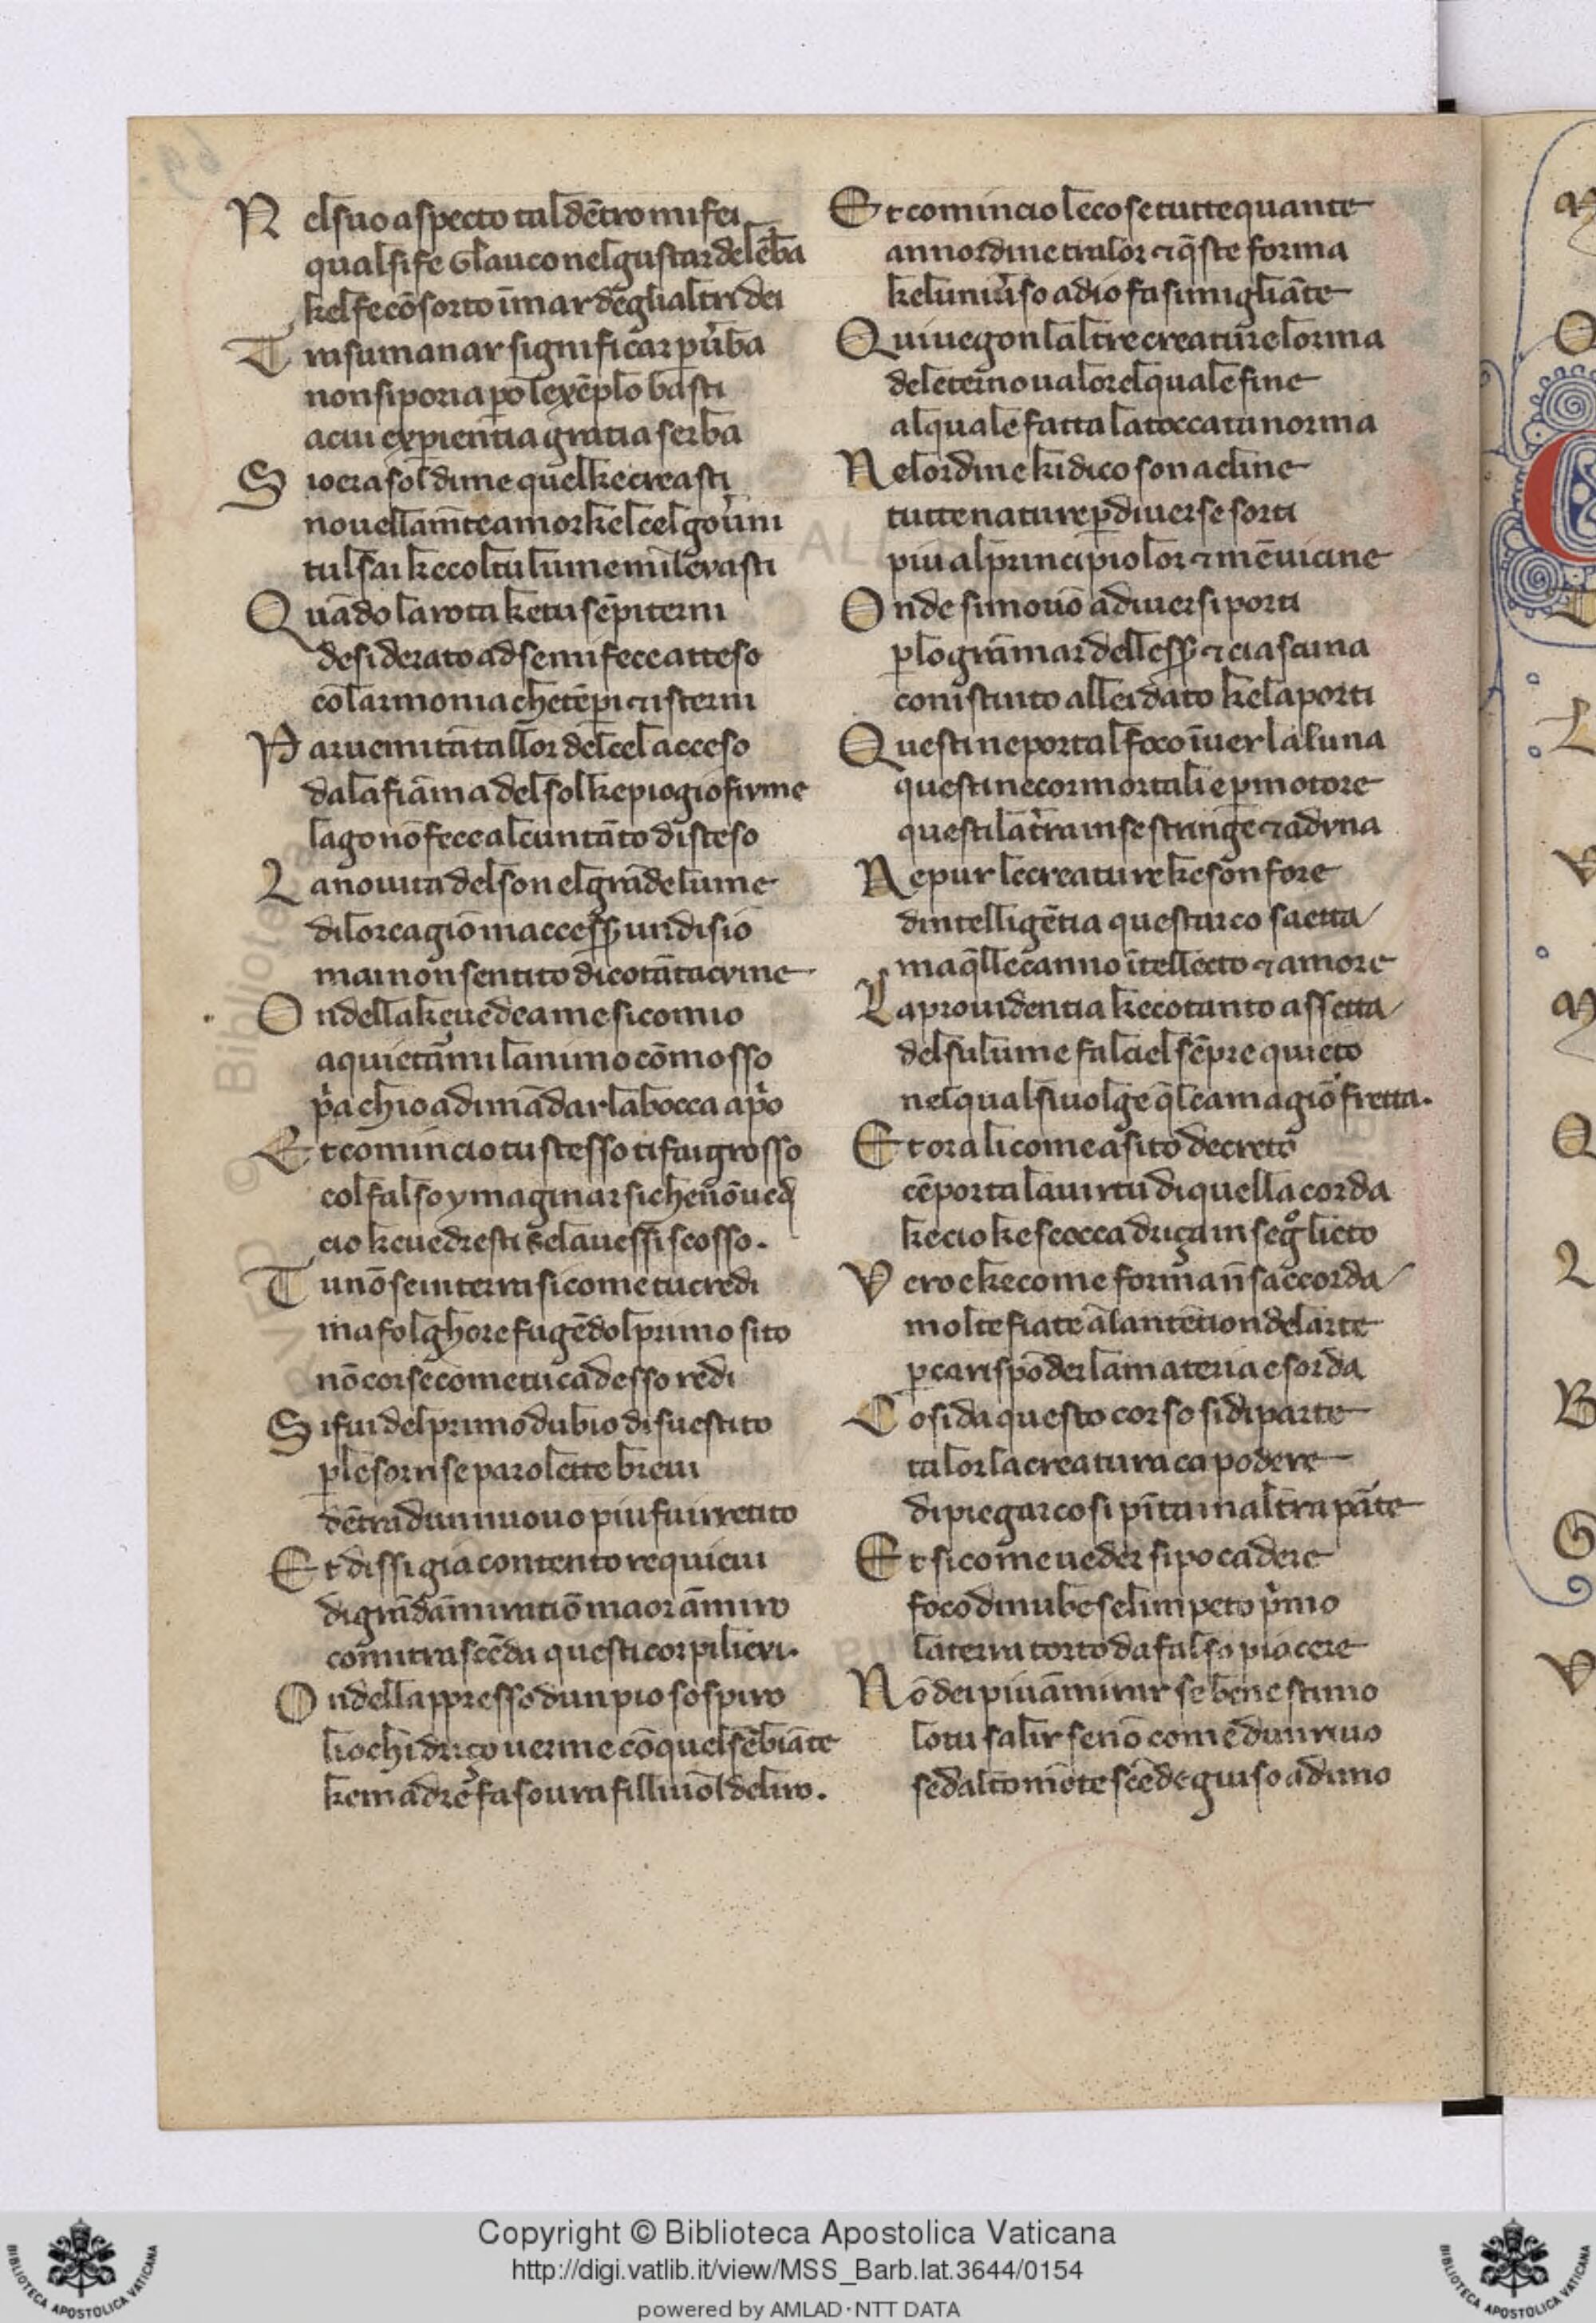 N elsuo aspecto tal dētro mi fei
qual si fe Glauco nel gustar de lēba
kel fe cōsorto ī mar degli altri dei
T rasumanar significar p ùba
non si poria pò lexēplo basti
a cui expientia gratia serba
S io era sol di me quel ke creasti
nouellam̄te amor kel cel goùni
tul sai ke col tu lume mi leuasti
Q uādo la rota ke tu sēpiterni
desiderato ad se mi fece atteso
cō larmonia che tēpi ⁊ disterni
P aruemi tāta llor del cel acceso
da la fiāma del sol ke piogia o fiume
lago nō fece alcun tāto disteso
L a nouita del son el grāde lume
di lor cagiō maccesꝑ un disio
mai non sentito di cotāta cume
O ndella ke uedea me si comio
a quietāmi lanimo cōmosso
p̀a chio a dimādar la bocca ap̀o
E t comincio tu stesso ti fai grosso
col falso ymaginar si che nō ued̨
cio ke uedresti se lauessi scosso.
T u nō se in terra si come tu credi
ma folghore fugēdol primo sito
nō corse come tu cadesso redi
S i fui del primo dubio disuestito
ꝑ le sorrise parolette breui
dētrad un nuouo piu fui irretito
E t dissi gia contento requieui
di grāda āmiratiō ma or āmiro
comi trascēda questi corpi lieui.
O ndella appresso dun pio sospiro
liochi driço uer me cō quel sēbiāte
ke madre fa soura filliuol deliro.
E t comincio le cose tutte quante
ann ordine tra lor ⁊ q̄ste forma
ke luniùso a dio fa simigliāte
Q uiuegon laltre creature lorma
de leterno ualore lquale fine
al quale fatta la toccata norma
N elordine ki dico sono acline
tutte nature ꝑ diuerse sorti
piu al principio lor ⁊ mē uicine
O nde si mouō a diuersi porti
ꝑ lo grā mar dellesꝑ ⁊ ciascuna
con istinto allei dato kela porti
Q uesti ne portal foco īuer la luna
questi ne cor mortali e ꝑmotore
questi la t̀ra in se stringe ⁊ aduna
N e pur le creature ke son fore
dintelligētia quest arco saetta
ma q̄lle canno ītellecto ⁊ amore
L a prouidentia ke cotanto assetta
del su lume fal ciel sēpre quieto
nel qual si uolge q̄l ca magiō fretta.
E t ora li come a sito decreto
cē porta la uirtu di quella corda
ke cio ke scocca driça in segº lieto
V ero e ke come forma nn̄ saccorda
molte fiate a lantētion de larte
ꝑca rispōder la materia e sorda
C osi da questo corso si diparte
talor la creatura ca podere
di piegar cosi pīta in altra parte
E t si come ueder si po cadere
foco di nube se limpeto p̀mo
laterra torto da falso piacere
N ō dei piu āmirar se bene stimo
lo tu salir se nō come dun riuo
se dalto mōte scēde giuso ad imo
Copyright © Biblioteca Apostolica Vaticana
http://digi.vatlib.it/view/MSS_Barb.lat.3644/0154
powered by AMLAD·NTT DATA